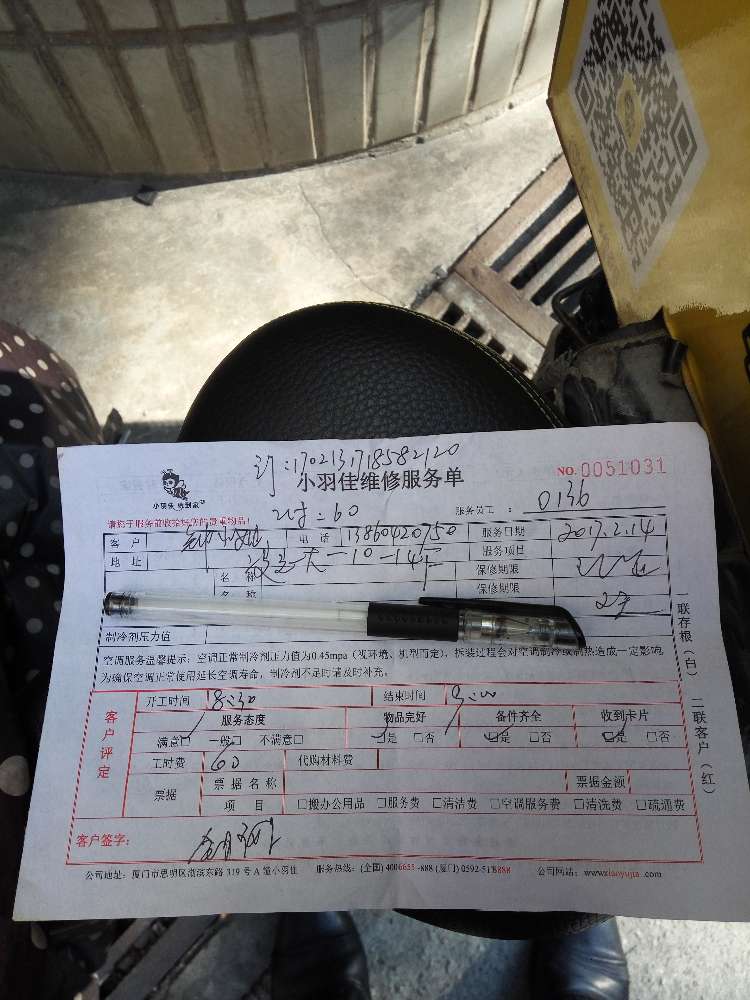 订:170213171858212​0
小羽佳维修服务单
NO.0051031
小羽佳 您到家
请您于服务前收拾好您的贵重物品!
:60
服务员工 : 0136
客户 电话 13860420750 服务日期 2017.2.14
地址 -10-14 服务项目
名称 保修期限
名称 保修期限
制冷剂压力值
空调服务温馨提示:空调正常制冷剂压力值为0.45mpa(视环境、机型而定),拆装过程会对空调制冷或制热造成一定影响
为确保空调正常使用延长空调寿命,制冷剂不足时请及时补充。
一联存根(白) 二联客户(红)
客户评定
开工时间 8:30 结束时间 9:00
服务态度 物品完好 备件齐全 收到卡片
满意□ 一般□ 不满意□ □是 □否 □是 □否 □是 □否
工时费 60 代购材料费
票据 票据名称 票据金额
项目 □搬办公用品 □服务费 □清洁费 □空调服务费 □清洗费 □疏通费
客户签字:
公司地址:厦门市思明区 东路319号A幢小羽佳 服务热线:(全国)4006655-888 (厦门)0592-5188888 公司网站:www.xiaoyujia.com